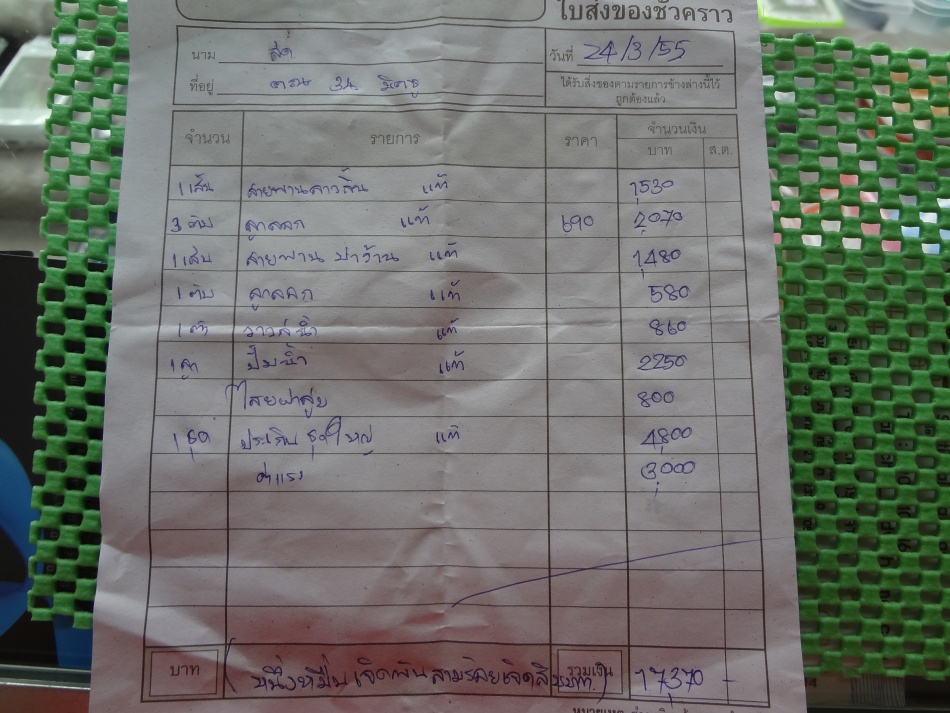 ใบส่งของชั่วคราว
นาม
วันที่ 24/3/55
ที่อยู่ 34
ได้รับสิ่งของตามรายการข้างล่างนี้ไว้
ถูกต้องแล้ว
จำนวน รายการ ราคา จำนวนเงิน
บาท ส.ต.
1 เส้น สายพานราวลิ้น แท้ 1530
3 ตับ ลูกลอก แท้ 690 2070
1 เส้น สายพาน แท้ 1480
1 ตับ ลูกลอก แท้ 580
1 ตัว วาวล์น้ำ แท้ 860
1 ลูก ปั๊มน้ำ แท้ 2250
ไสยฝาสูบ 800
1 ชุด ประเก็น ชุดใหญ่ แท้ 4800
ค่าแรง 3000
บาท (หนึ่งหมื่นเจ็ดพันสามร้อยเจ็ดสิบบาท) รวมเงิน 17370 -